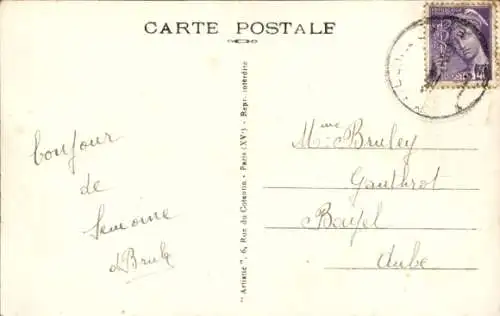 CARTE POSTALE
Bonjour
de
Semoine
"Artistic", 6, Rue du Cotentin - Paris (XVe) - Reproduction interdite
Mme Bruley
Gauthrot
Bayel
Aube